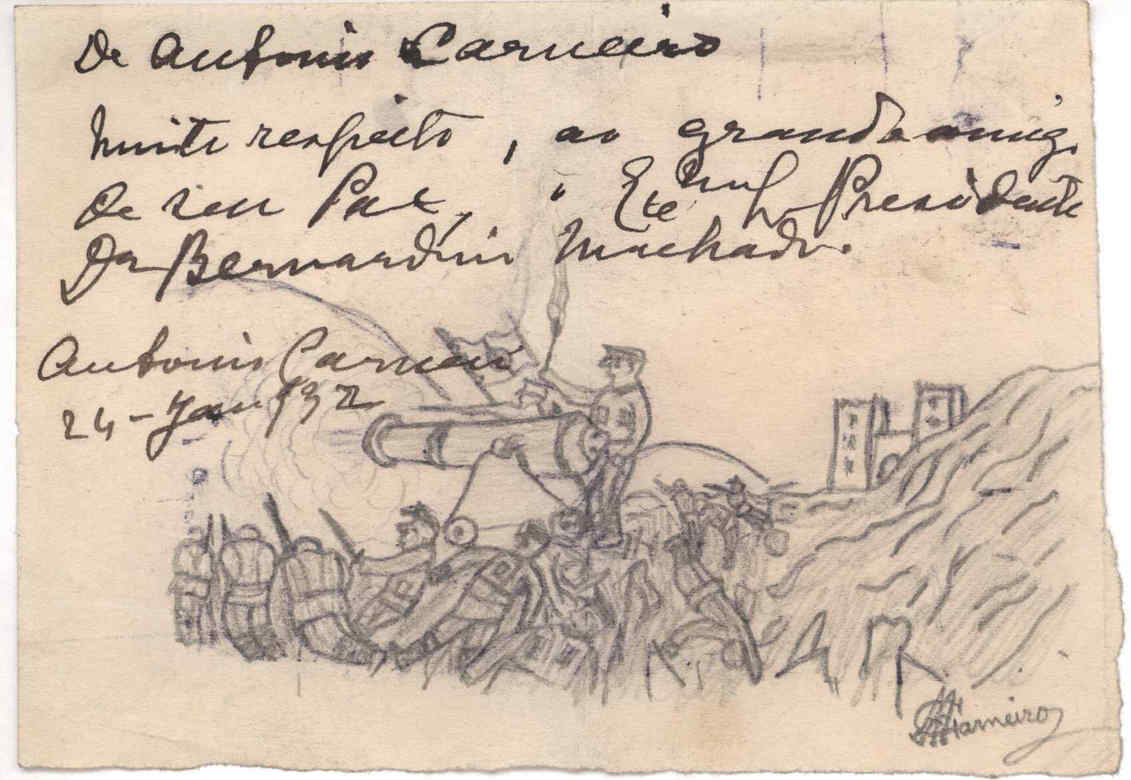 De Antonio Carneiro
Muito respeito, ao grande amigo
de seu Pai, o Exmo Sr Presidente
Dr Bernardino Machado.
Antonio Carneiro
24-Jan 932
Carneiro